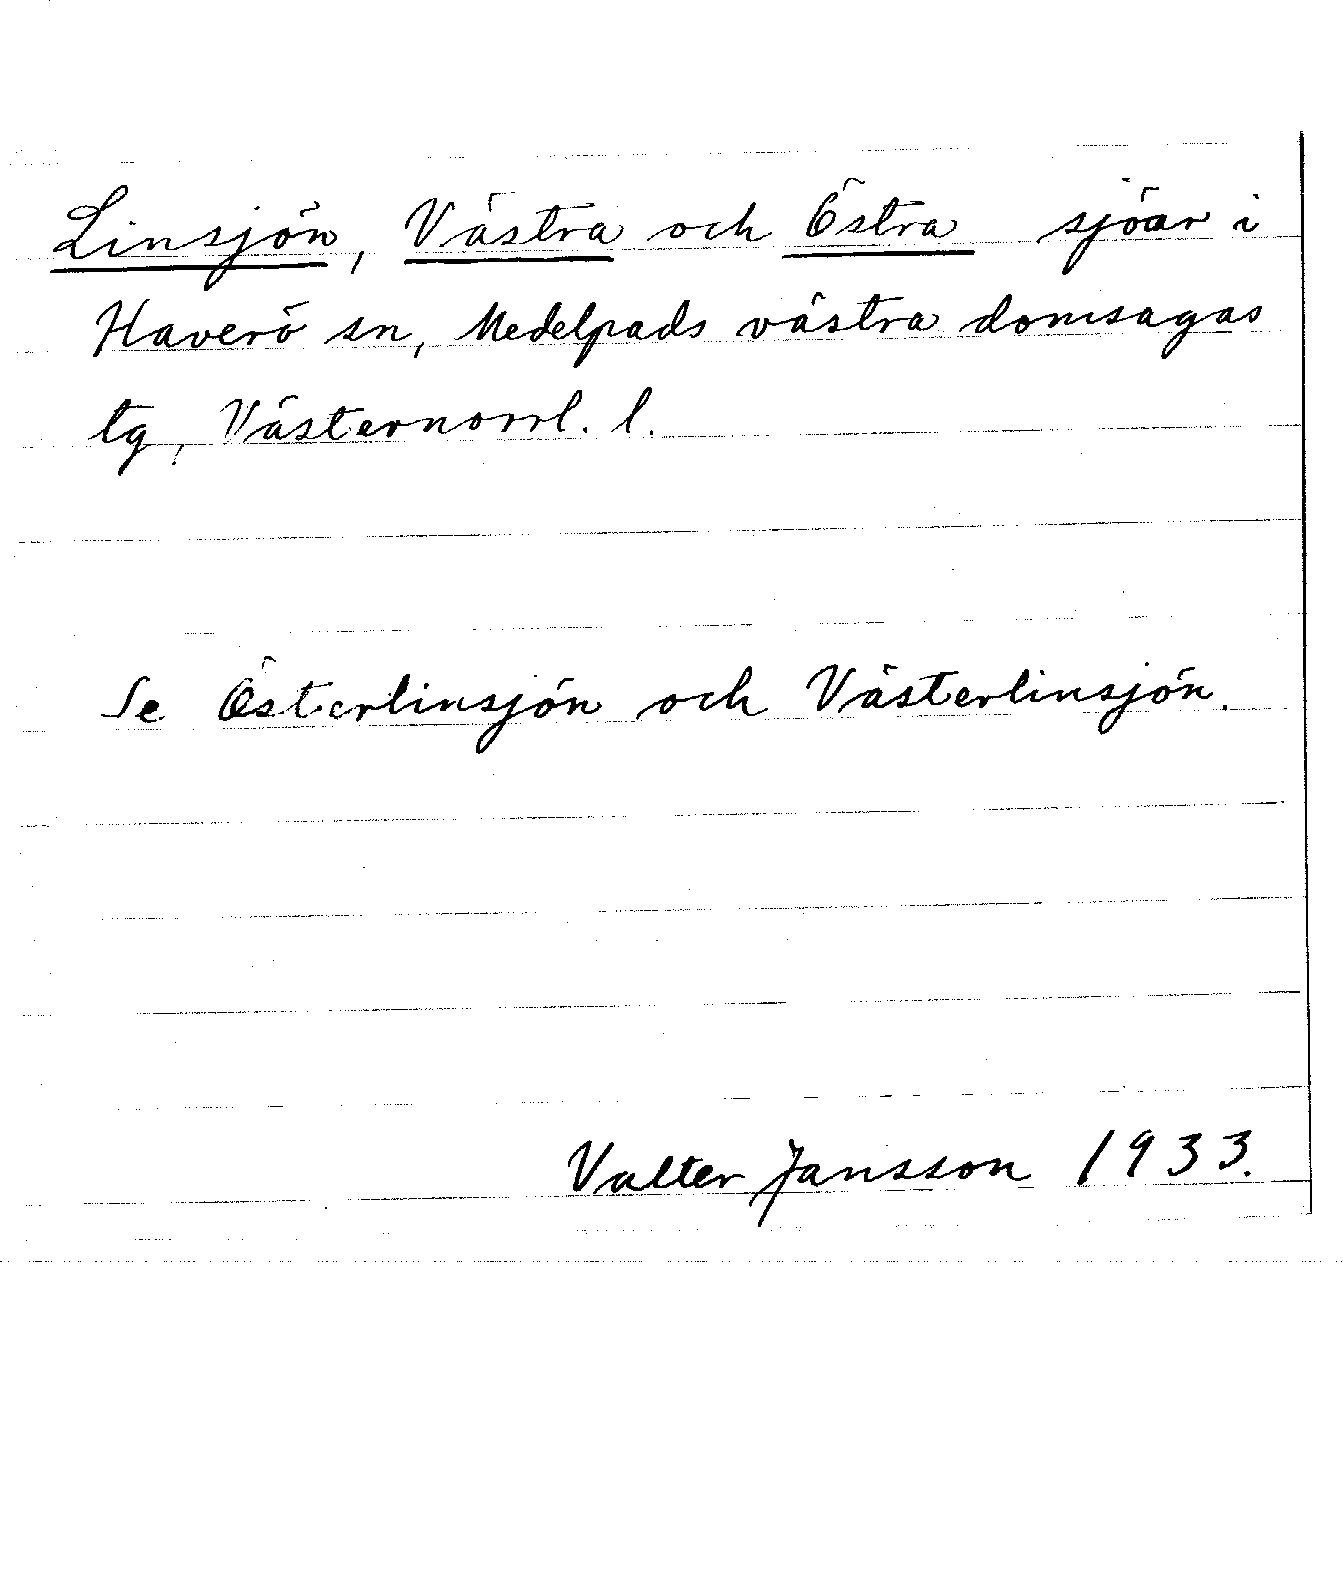 Linsjön, Västra och Östra sjöar i
Haverö sn, Medelpads västra domsagas
tg, Västernorrl. l.
Se Österlinsjön och Västerlinsjön.
Valter Jansson 1933.